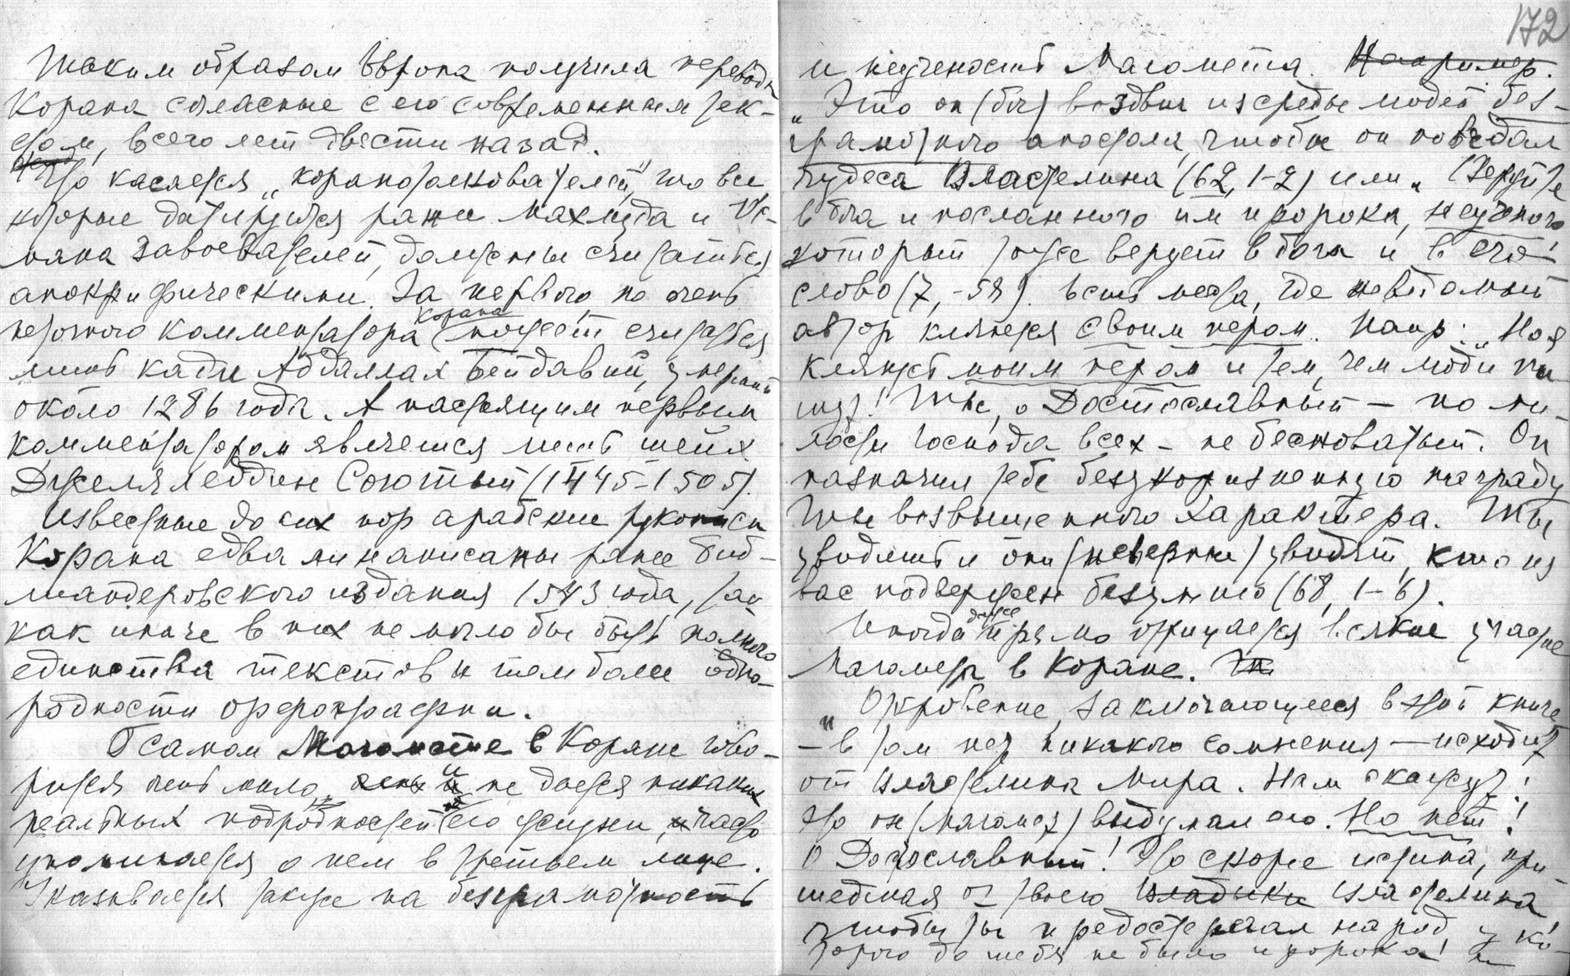 Таким образом Европа получила переводы
Корана согласные с его современным тек-
стом, всего лет двести назад.
Что касается „коранотолкователей“, то все
которые датируются ранее Махмуда и Ос-
мана Завоевателей, должны считаться
апокрифическими. За первого, но очень
неточного комментатора Корана может считаться
лишь кади Абдаллах Бейдавий, умерший
около 1286 года. А настоящим первым
комментатором является лишь шейх
Джеляледдин Соютый (1445-1505).
Известные до сих пор арабские рукописи
Корана едва ли написаны ранее Биб-
лиандеровского издания 1543 года, так
как иначе в них не могло бы быть полного
единства текстов и тем более одно-
родности орфографии.
О самом Магомете в Коране гово-
рится очень мало, и не дается никаких
реальных подробностей его жизни, часто
упоминается о нем в третьем лице.
Указывается также на безграмотность
172
и неученость Магомета. Например.
„Это он (бог) воздвиг из среды людей без-
грамотного апостола, чтобы он поведал
чудеса Властелина (62, 1-2) или „Веруйте
в бога и посланного им пророка, неученого
который тоже верует в бога и в его
слово (7, -58). Есть места, где неведомый
автор клянется своим пером. Напр: „Но я
клянусь моим пером и тем, чем люди пи
шут! Ты, о Достославный — по ми-
лости Господа всех — не бесноватый. Он
назначил тебе безукоризненную награду
Ты возвышенного характера. Ты
увидишь и они (неверные) увидят, кто из
вас подвержен безумию (68, 1-6).
Иногда даже прямо отрицается всякое участие
Магомета в Коране.
„Откровение, заключающееся в этой книге
— в том нет никакого сомнения — исходит
от Властелина Мира. Нам скажут:
это он (Магомет) выдумал его. Но нет!
О Достославный! Это скорее истина, при
шедшая от твоего Владыки Властелина
чтобы ты предостерегал народ, у ко-
торого до тебя не было пророка!